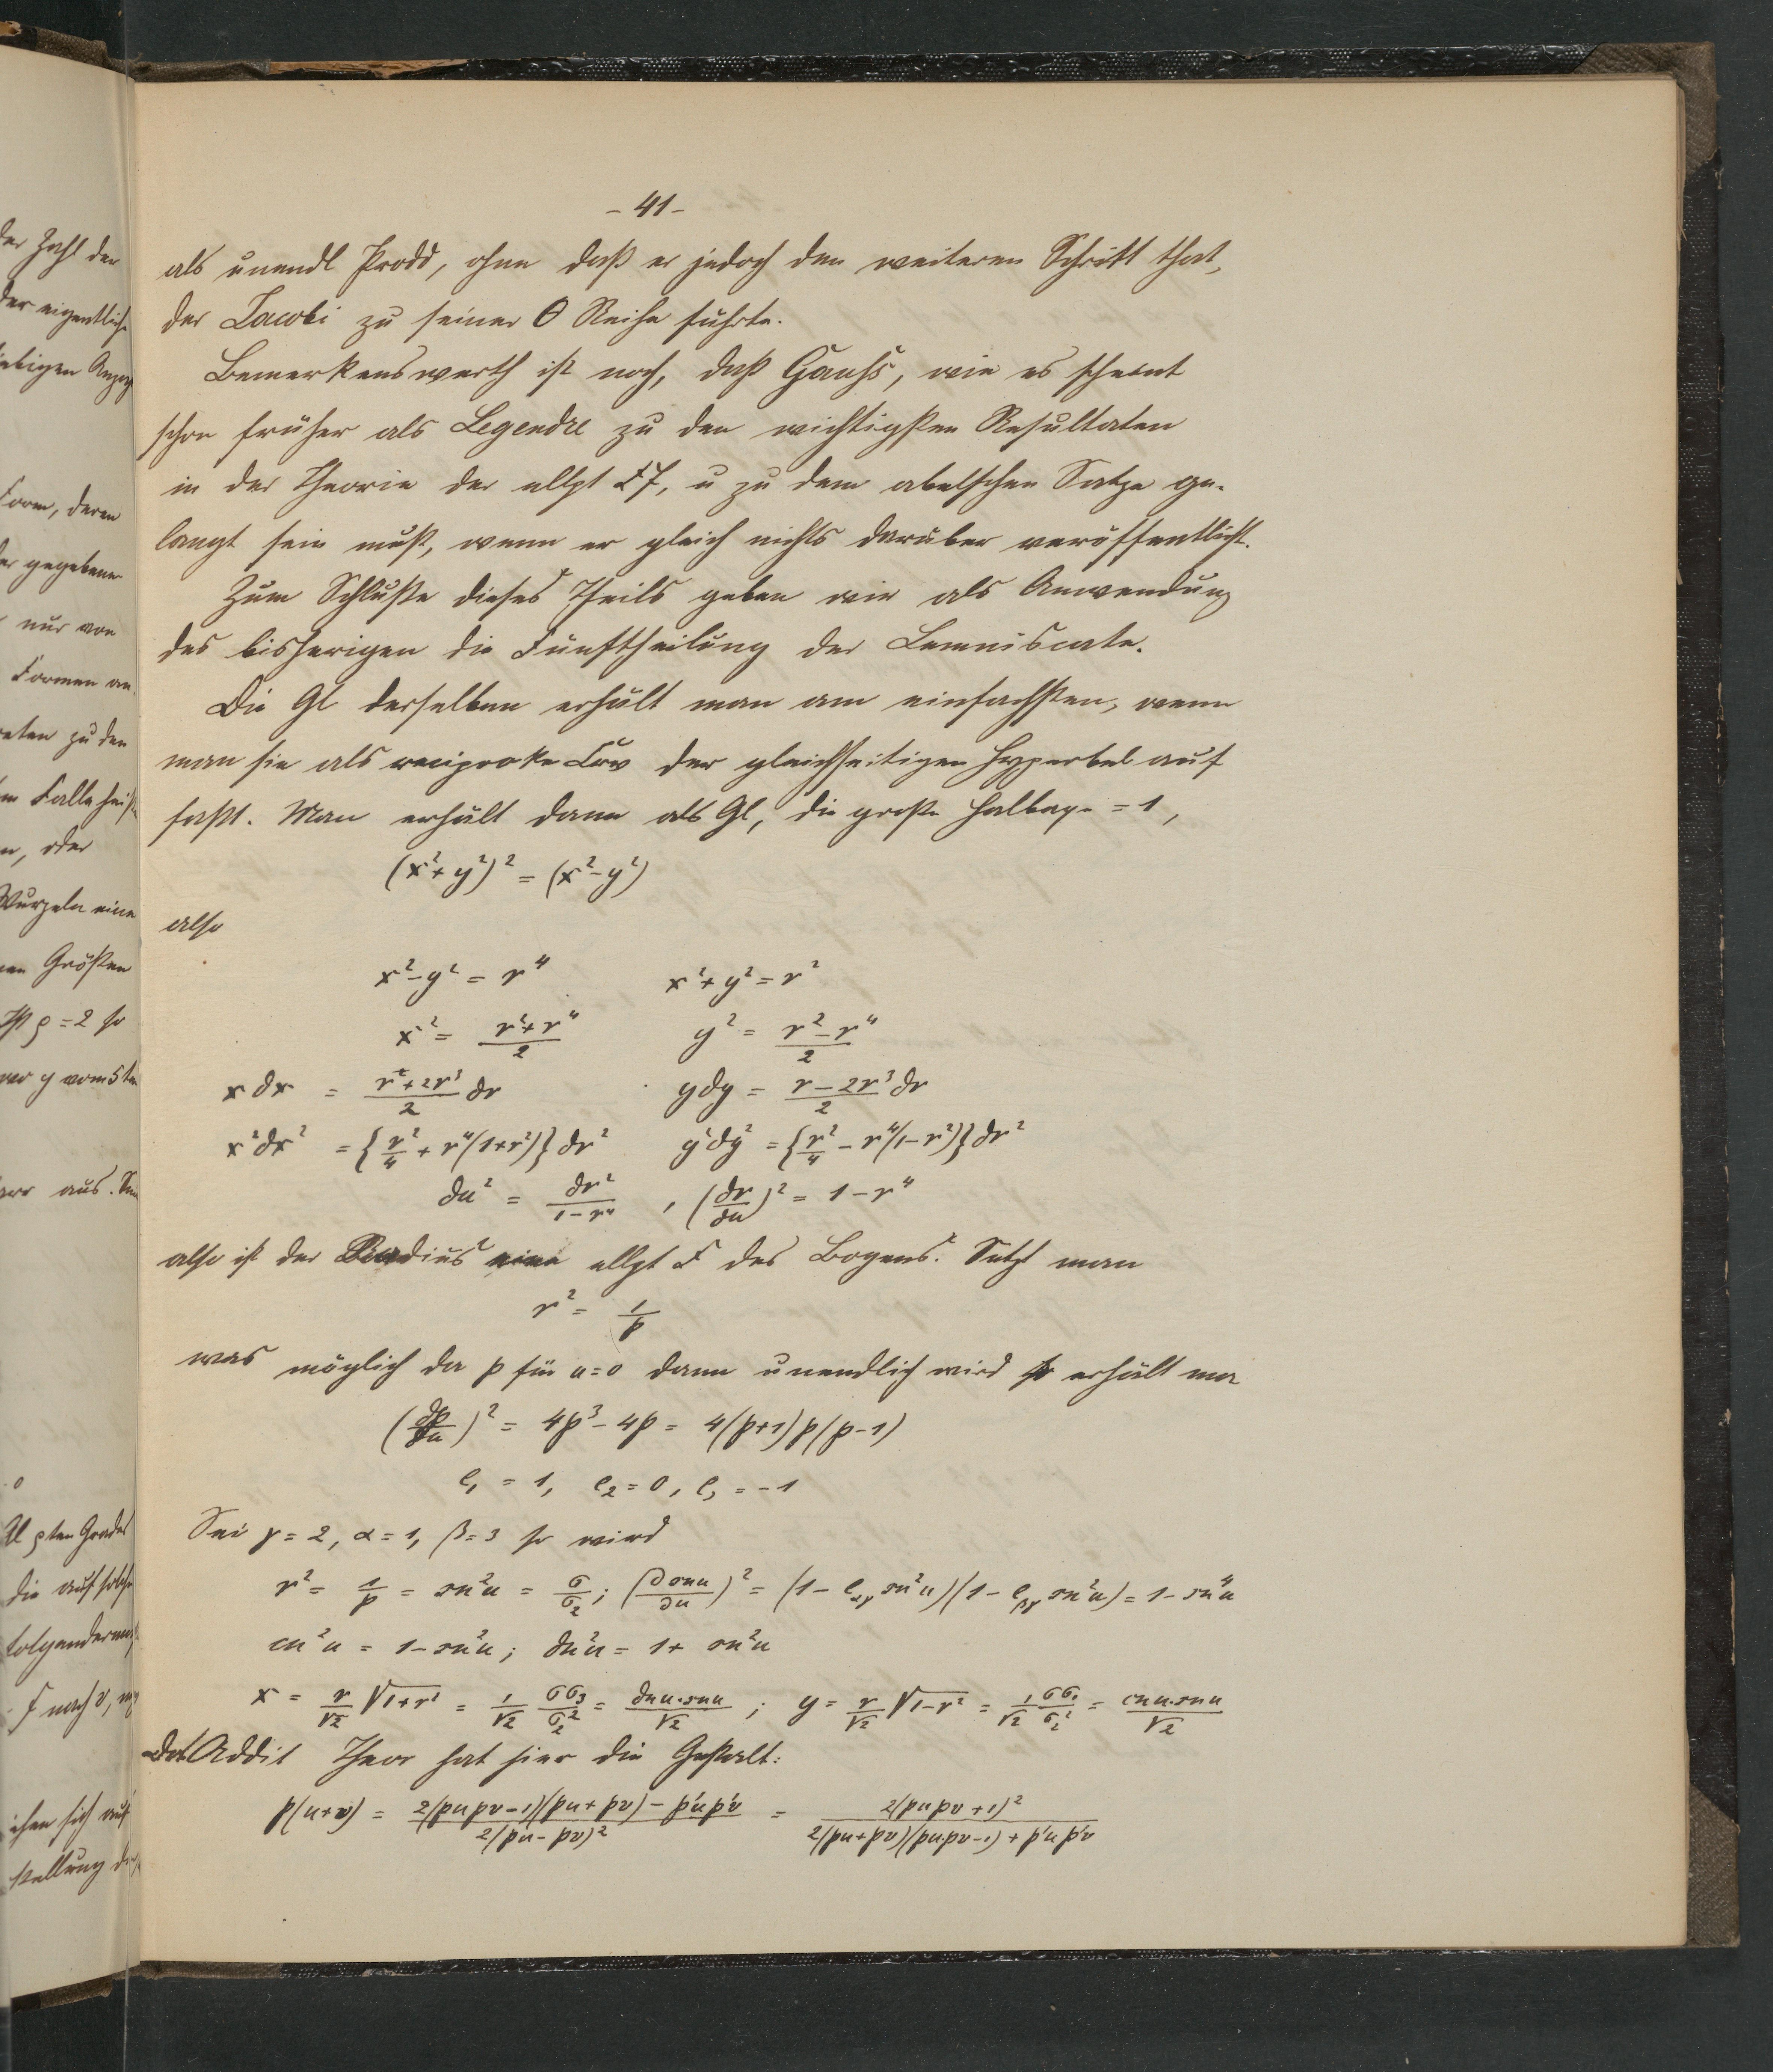 - 41 -
als unendl Prodd, ohne daß er jedoch den weiteren Schritt that,
der Jacobi zu seiner Θ Reihe führte.
Bemerkenswerth ist noch, daß Gauß, wie es scheint
schon früher als Legendre zu den wichtigsten Resultaten
in der Theorie der ellpt FF, u zu dem abelschen Satze ge-
langt sein muß, wenn er gleich nichts darüber veröffentlicht.
Zum Schluße dieses Theils geben wir als Anwendung
des bisherigen die Fünftheilung der Lemniscate.
Die Gl derselben erhält man am einfachsten, wenn
man sie als reciproke Curv der gleichseitigen Hyperbel auf
faßt. Man erhält dann als Gl, die große Halbaxe = 1,
(x²+y²)² = (x²-y²)
also
x²-y² = r⁴ x²+y² = r²
x² = (r²+r⁴)/2 y² = (r²-r⁴)/2
x dx = (r+2r³)/2 dr y dy = (r-2r³)/2 dr
x²dx² = {r²/4 + r⁴(1+r²)} dr² y²dy² = {r²/4 - r⁴(1-r²)} dr²
du² = dr²/(1-r⁴) , (dr/du)² = 1-r⁴
also ist der Radius eine ellpt F des Bogens. Setzt man
r² = 1/p
was möglich da p für u=0 dann unendlich wird so erhält man
(dp/du)² = 4p³-4p = 4(p+1)p(p-1)
e₁ = 1, e₂ = 0, e₃ = -1
Sei γ = 2, α = 1, β = 3 so wird
r² = 1/p = sn²u = σ/σ₂ ; (∂snu/∂u)² = (1-e_αγ sn²u)(1-e_βγ sn²u) = 1-sn⁴u
cn²u = 1-sn²u ; dn²u = 1+ sn²u
x = r/√2 √(1+r²) = 1/√2 σσ₃/σ₂² = dnu·snu/√2 ; y = r/√2 √(1-r²) = 1/√2 σσ₁/σ₂² = cnu·snu/√2
Das Addit Theor hat hier die Gestalt:
p(u+v) = (2(pu pv-1)(pu+pv) - p'u p'v)/(2(pu-pv)²) = 2(pu pv+1)²/(2(pu+pv)(pu pv-1) + p'u p'v)